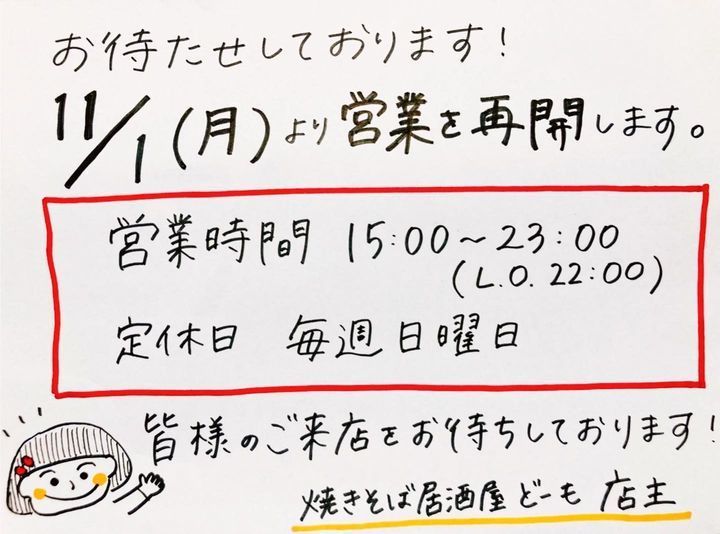 お待たせしております!
11/1(月)より営業を再開します。
営業時間 15:00~23:00
(L.O. 22:00)
定休日 毎週日曜日
皆様のご来店をお待ちしております!
焼きそば居酒屋 どーも 店主